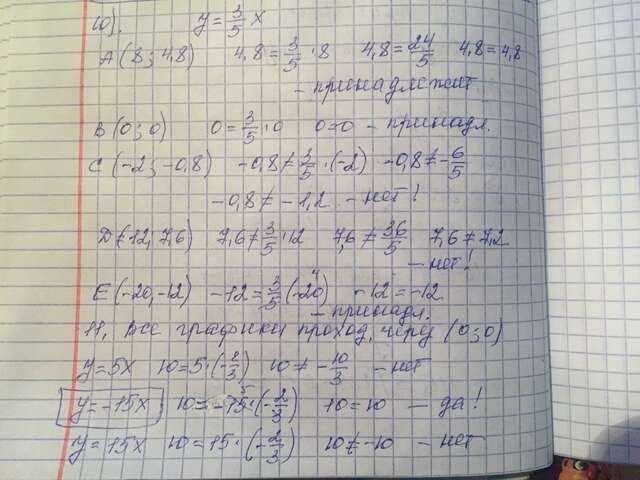 10). y = 3/5 x
A (8; 4,8) 4,8 = 3/5 · 8 4,8 = 24/5 4,8 = 4,8
- принадлежит
B (0; 0) 0 = 3/5 · 0 0=0 - принадл.
C (-2; -0,8) -0,8 ≠ 3/5 · (-2) -0,8 ≠ -6/5
-0,8 ≠ -1,2 - нет!
D (12; 7,6) 7,6 ≠ 3/5 · 12 7,6 ≠ 36/5 7,6 ≠ 7,2
- нет!
E (-20, -12) -12 = 3/5 (-20) -12 = -12
- принадл.
11, Все графики проход. через (0; 0)
y = 5x 10 = 5 · (-2/3) 10 ≠ -10/3 - нет
y = -15x 10 = -15 · (-2/3) 10 = 10 - да!
y = 15x 10 = 15 · (-2/3) 10 ≠ -10 - нет